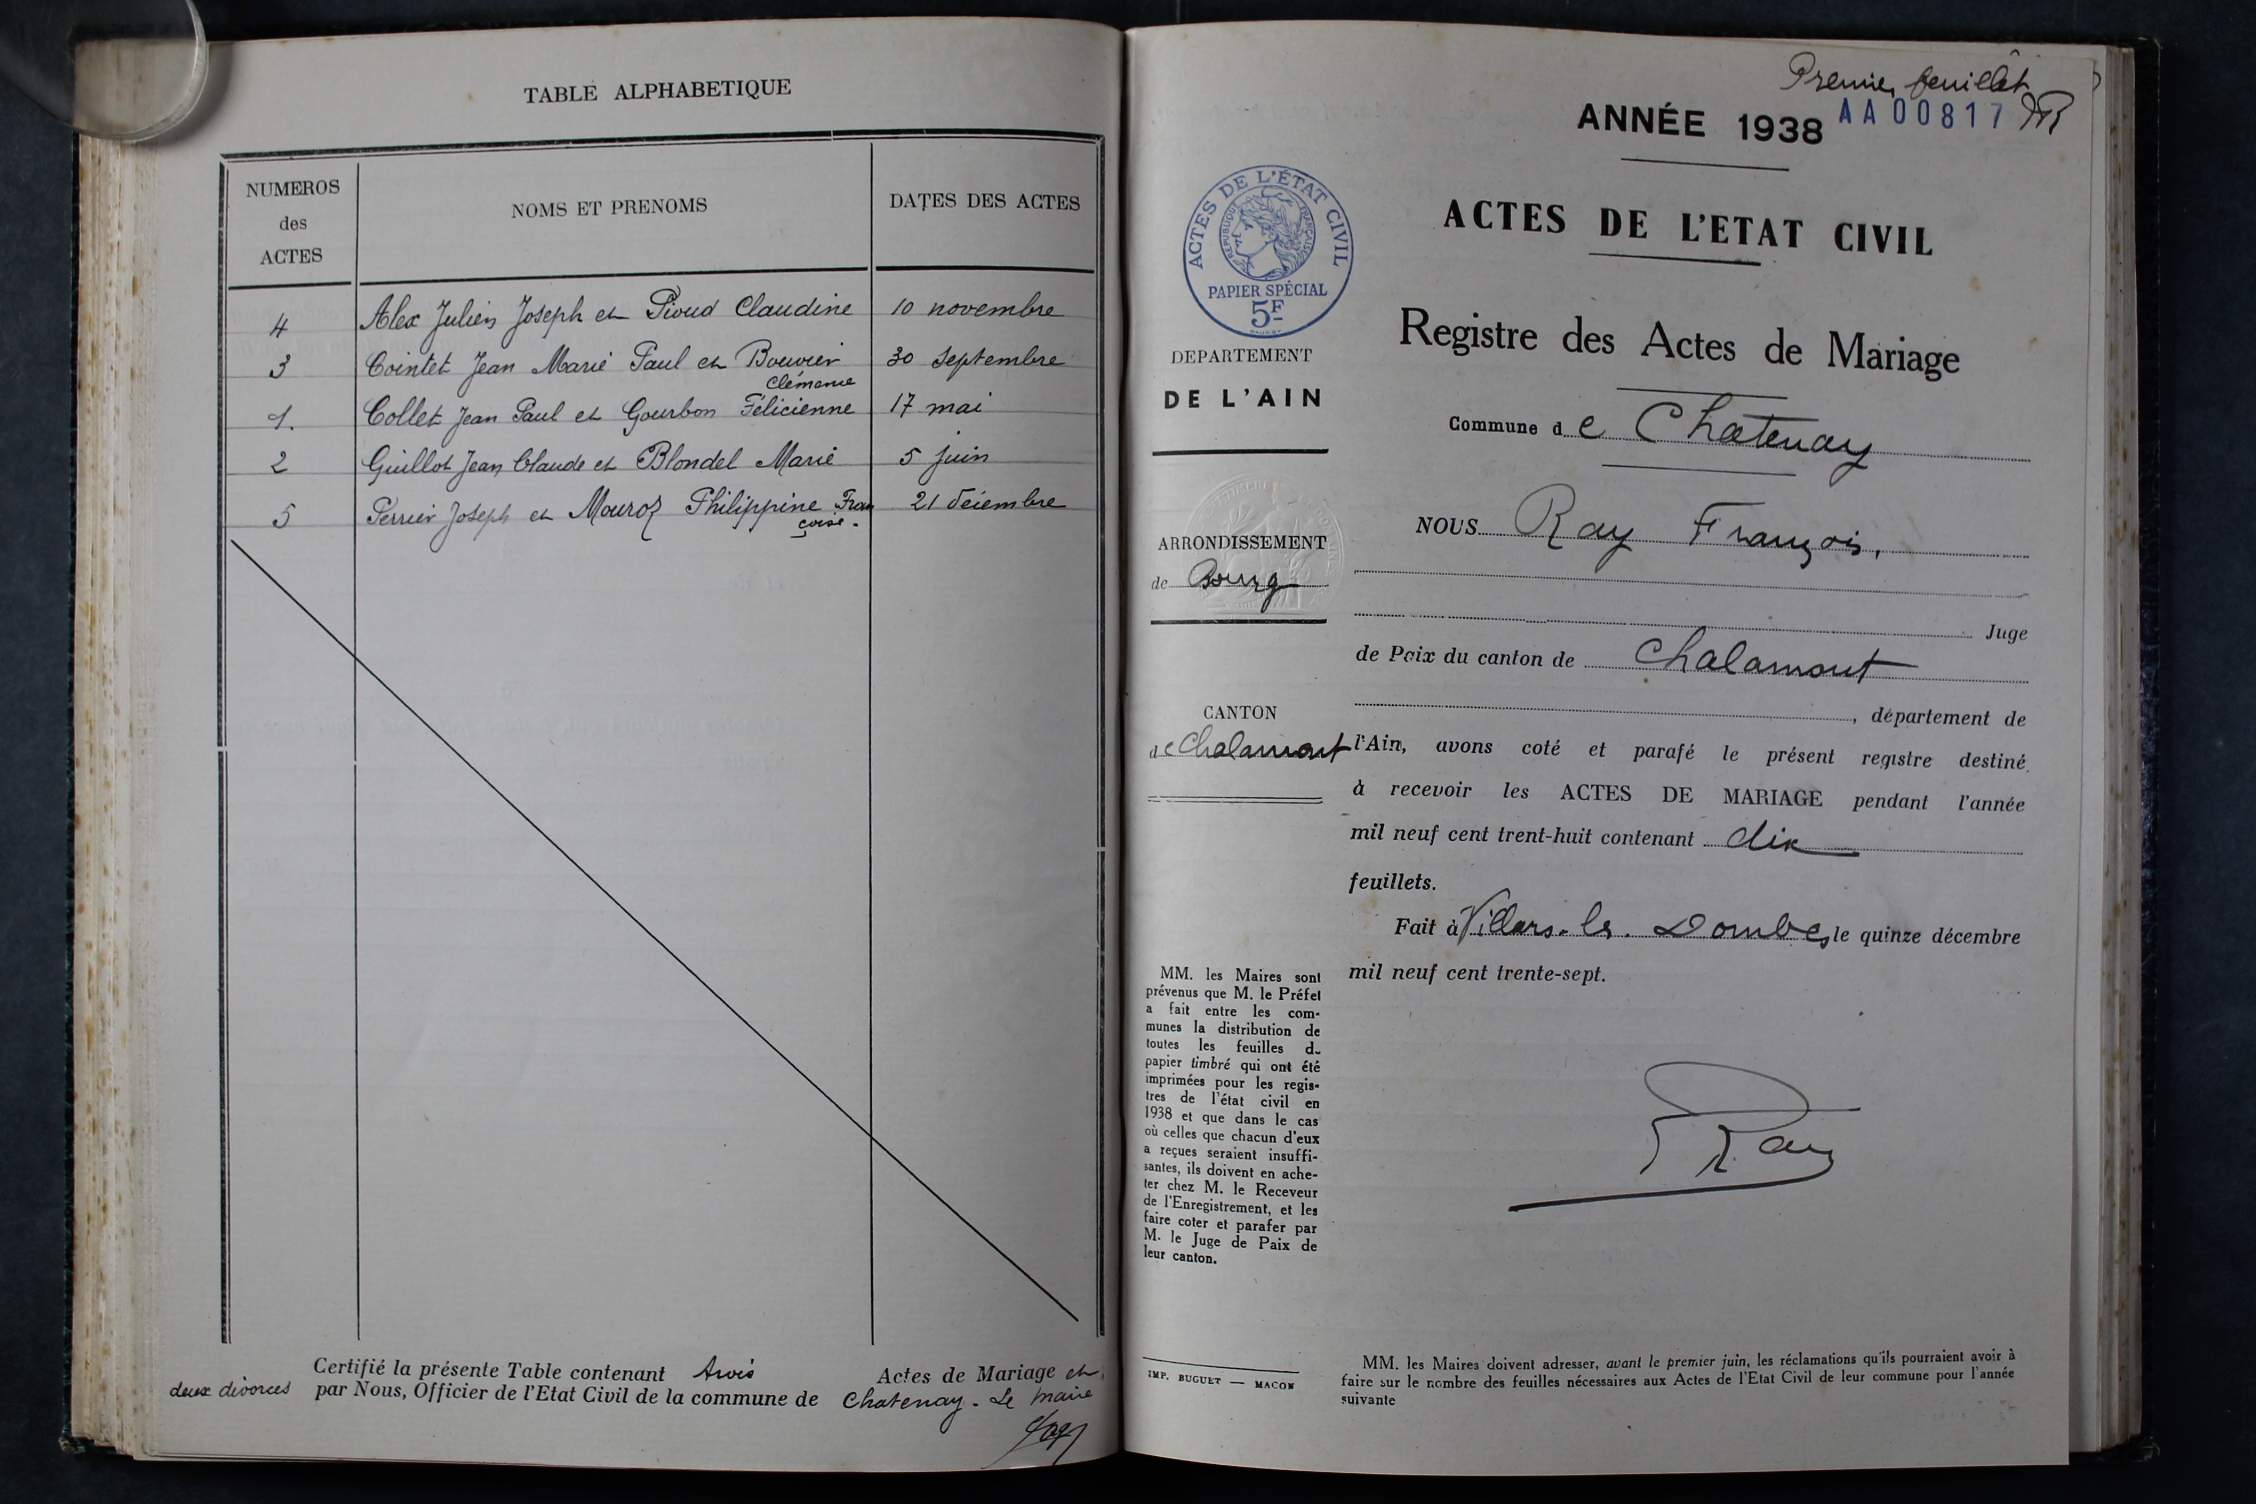 TABLE ALPHABETIQUE
NUMEROS
des
ACTES
NOMS ET PRENOMS
DATES DES ACTES
4 Alex Julien Joseph et Pivud Claudine 10 novembre
3 Cointet Jean Marie Paul et Bouvier 30 septembre
Clémence
1. Collet Jean Paul et Gourbon Félicienne 17 mai
2 Guillot Jean Claude et Blondel Marie 5 juin
5 Perrier Joseph et Mouroz Philippine Fran 21 décembre
çoise.
Certifié la présente Table contenant trois Actes de Mariage et
deux divorces par Nous, Officier de l'Etat Civil de la commune de Chatenay. Le maire
Premier feuillet
ANNÉE 1938 AA00817
ACTES DE L'ÉTAT CIVIL
RÉPUBLIQUE FRANÇAISE
PAPIER SPÉCIAL
5F
ACTES DE L'ETAT CIVIL
Registre des Actes de Mariage
Commune de Chatenay
DEPARTEMENT
DE L'AIN
ARRONDISSEMENT
de Bourg
CANTON
de Chalamont
NOUS Ray François,
Juge
de Paix du canton de Chalamont
, département de
l'Ain, avons coté et parafé le présent registre destiné
à recevoir les ACTES DE MARIAGE pendant l'année
mil neuf cent trent-huit contenant dix
feuillets.
Fait à Villars-les-Dombes, le quinze décembre
mil neuf cent trente-sept.
Ray
MM. les Maires sont
prévenus que M. le Préfet
a fait entre les com-
munes la distribution de
toutes les feuilles d
papier timbré qui ont été
imprimées pour les regis-
tres de l'état civil en
1938 et que dans le cas
où celles que chacun d'eux
a reçues seraient insuffi-
santes, ils doivent en ache-
ter chez M. le Receveur
de l'Enregistrement, et les
faire coter et parafer par
M. le Juge de Paix de
leur canton.
IMP. BUGUET — MACON
MM. les Maires doivent adresser, avant le premier juin, les réclamations qu'ils pourraient avoir à
faire sur le nombre des feuilles nécessaires aux Actes de l'Etat Civil de leur commune pour l'année
suivante